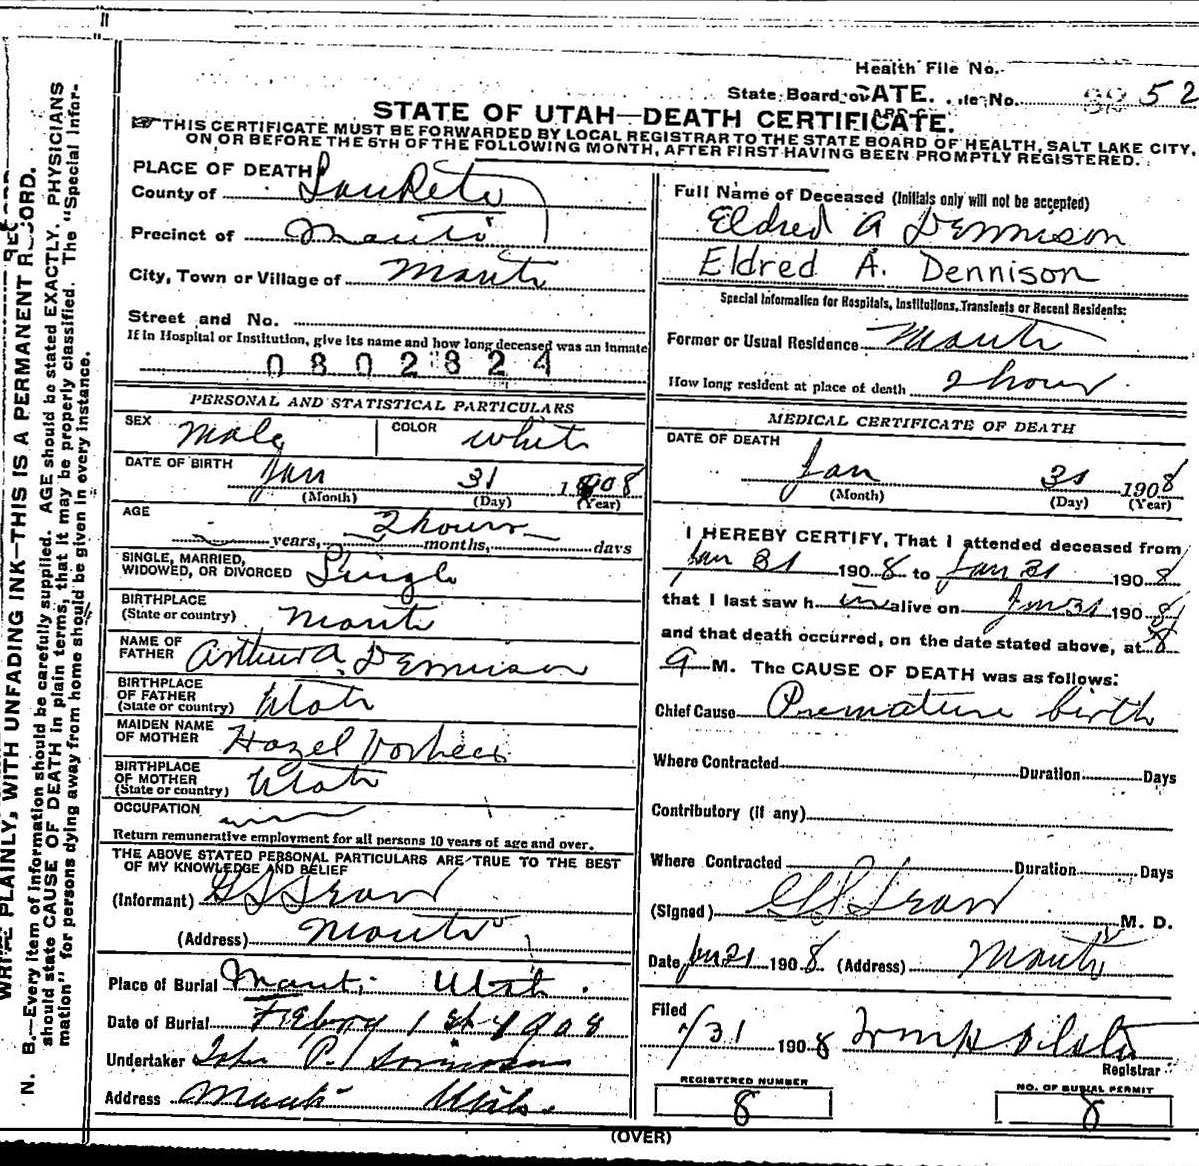 Health File No.
State Board of ATE. File No. 52
STATE OF UTAH—DEATH CERTIFICATE.
☞THIS CERTIFICATE MUST BE FORWARDED BY LOCAL REGISTRAR TO THE STATE BOARD OF HEALTH, SALT LAKE CITY,
ON OR BEFORE THE 5TH OF THE FOLLOWING MONTH, AFTER FIRST HAVING BEEN PROMPTLY REGISTERED.
PLACE OF DEATH
County of SanPete
Precinct of Manti
City, Town or Village of Manti
Street and No.
If in Hospital or Institution, give its name and how long deceased was an inmate
0802824
PERSONAL AND STATISTICAL PARTICULARS
SEX Male COLOR White
DATE OF BIRTH Jan 31 1908
(Month) (Day) (Year)
AGE 2 hours
years, months, days
SINGLE, MARRIED,
WIDOWED, OR DIVORCED Single
BIRTHPLACE
(State or country) Manti
NAME OF
FATHER Arthur A. Dennison
BIRTHPLACE
OF FATHER
(State or country) Utah
MAIDEN NAME
OF MOTHER Hazel Vorhees
BIRTHPLACE
OF MOTHER
(State or country) Utah
OCCUPATION
Return remunerative employment for all persons 10 years of age and over.
THE ABOVE STATED PERSONAL PARTICULARS ARE TRUE TO THE BEST
OF MY KNOWLEDGE AND BELIEF
(Informant)
(Address) Manti
Place of Burial Manti Utah.
Date of Burial 1st 1908
Undertaker John P.
Address Manti Utah.
Full Name of Deceased (Initials only will not be accepted)
Eldred A Dennison
Eldred A. Dennison
Special Information for Hospitals, Institutions, Transients or Recent Residents:
Former or Usual Residence Manti
How long resident at place of death 2 hour
MEDICAL CERTIFICATE OF DEATH
DATE OF DEATH
Jan 31 1908
(Month) (Day) (Year)
I HEREBY CERTIFY, That I attended deceased from
Jan 31 1908 to Jan 31 1908
that I last saw h im alive on Jan 31 1908
and that death occurred, on the date stated above, at 8
a M. The CAUSE OF DEATH was as follows:
Chief Cause Premature birth
Where Contracted Duration Days
Contributory (if any)
Where Contracted Duration Days
(Signed) M. D.
Date Jan 31 1908 (Address) Manti
Filed
1/31 1908
Registrar
REGISTERED NUMBER
8
NO. OF BURIAL PERMIT
8
(OVER)
WRITE PLAINLY, WITH UNFADING INK—THIS IS A PERMANENT RECORD.
N. B.—Every item of information should be carefully supplied. AGE should be stated EXACTLY. PHYSICIANS
should state CAUSE OF DEATH in plain terms, that it may be properly classified. The "Special Infor-
mation" for persons dying away from home should be given in every instance.